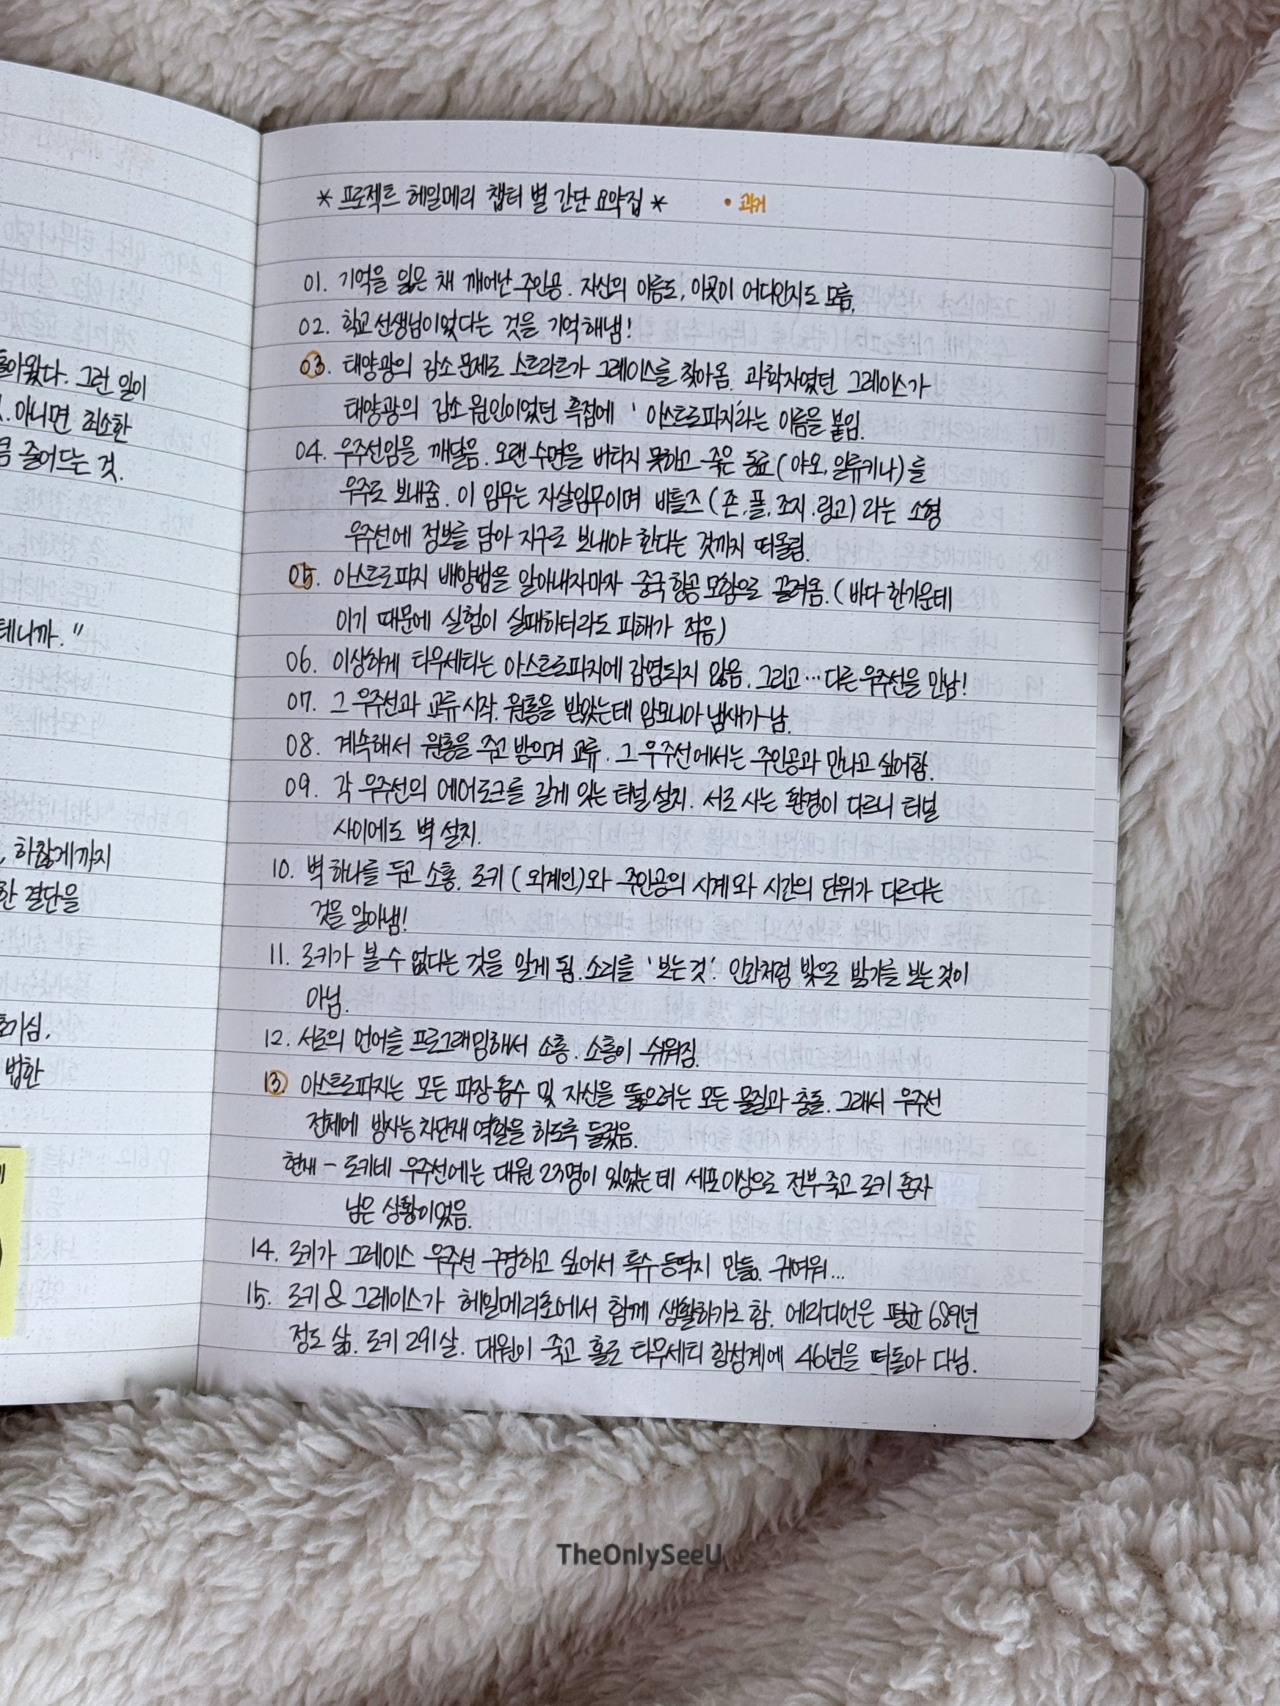 돌아왔다. 그런 일이
. 아니면 최소한
큼 줄어드는 것.
테니까."
, 하찮게까지
한 결단을
호기심.
법한
* 프로젝트 헤일메리 챕터 별 간단 요약집 * • 과거
01. 기억을 잃은 채 깨어난 주인공. 자신의 이름도, 이곳이 어디인지도 모름.
02. 학교 선생님이었다는 것을 기억해냄!
03. 태양광의 감소 문제로 스트라트가 그레이스를 찾아옴. 과학자였던 그레이스가
태양광의 감소 원인이었던 흑점에 '아스트로파지'라는 이름을 붙임.
04. 우주선임을 깨달음. 오랜 수면을 버티지 못하고 죽은 동료(야오, 일류키나)를
우주로 보내줌. 이 임무는 자살임무이며 비틀즈(존, 폴, 조지, 링고)라는 소형
우주선에 정보를 담아 지구로 보내야 한다는 것까지 떠올림.
05. 아스트로파지 배양법을 알아내자마자 중국 항공모함으로 끌려옴. (바다 한가운데
이기 때문에 실험이 실패하더라도 피해가 적음)
06. 이상하게 타우세티는 아스트로파지에 감염되지 않음. 그리고… 다른 우주선을 만남!
07. 그 우주선과 교류 시작. 원통을 받았는데 암모니아 냄새가 남.
08. 계속해서 원통을 주고 받으며 교류. 그 우주선에서는 주인공과 만나고 싶어함.
09. 각 우주선의 에어로크를 길게 잇는 터널 설치. 서로 사는 환경이 다르니 터널
사이에도 벽 설치.
10. 벽 하나를 두고 소통. 로키(외계인)와 주인공의 시계와 시간의 단위가 다르다는
것을 알아냄!
11. 로키가 볼 수 없다는 것을 알게 됨. 소리를 '보는 것'. 인간처럼 빛으로 밝기를 보는 것이
아님.
12. 서로의 언어를 프로그래밍해서 소통. 소통이 쉬워짐.
13. 아스트로파지는 모든 파장 흡수 및 자신을 뚫으려는 모든 물질과 충돌. 그래서 우주선
전체에 방사능 차단재 역할을 하도록 둘렀음.
현재 - 로키네 우주선에는 대원 23명이 있었는데 세포이상으로 전부 죽고 로키 혼자
남은 상황이었음.
14. 로키가 그레이스 우주선 구경하고 싶어서 특수 등딱지 만듦. 귀여워...
15. 로키 & 그레이스가 헤일메리호에서 함께 생활하기로 함. 에리디언은 평균 689년
정도 삶. 로키 291살. 대원이 죽고 홀로 타우세티 항성계에 46년을 떠돌아 다님.
TheOnlySeeU